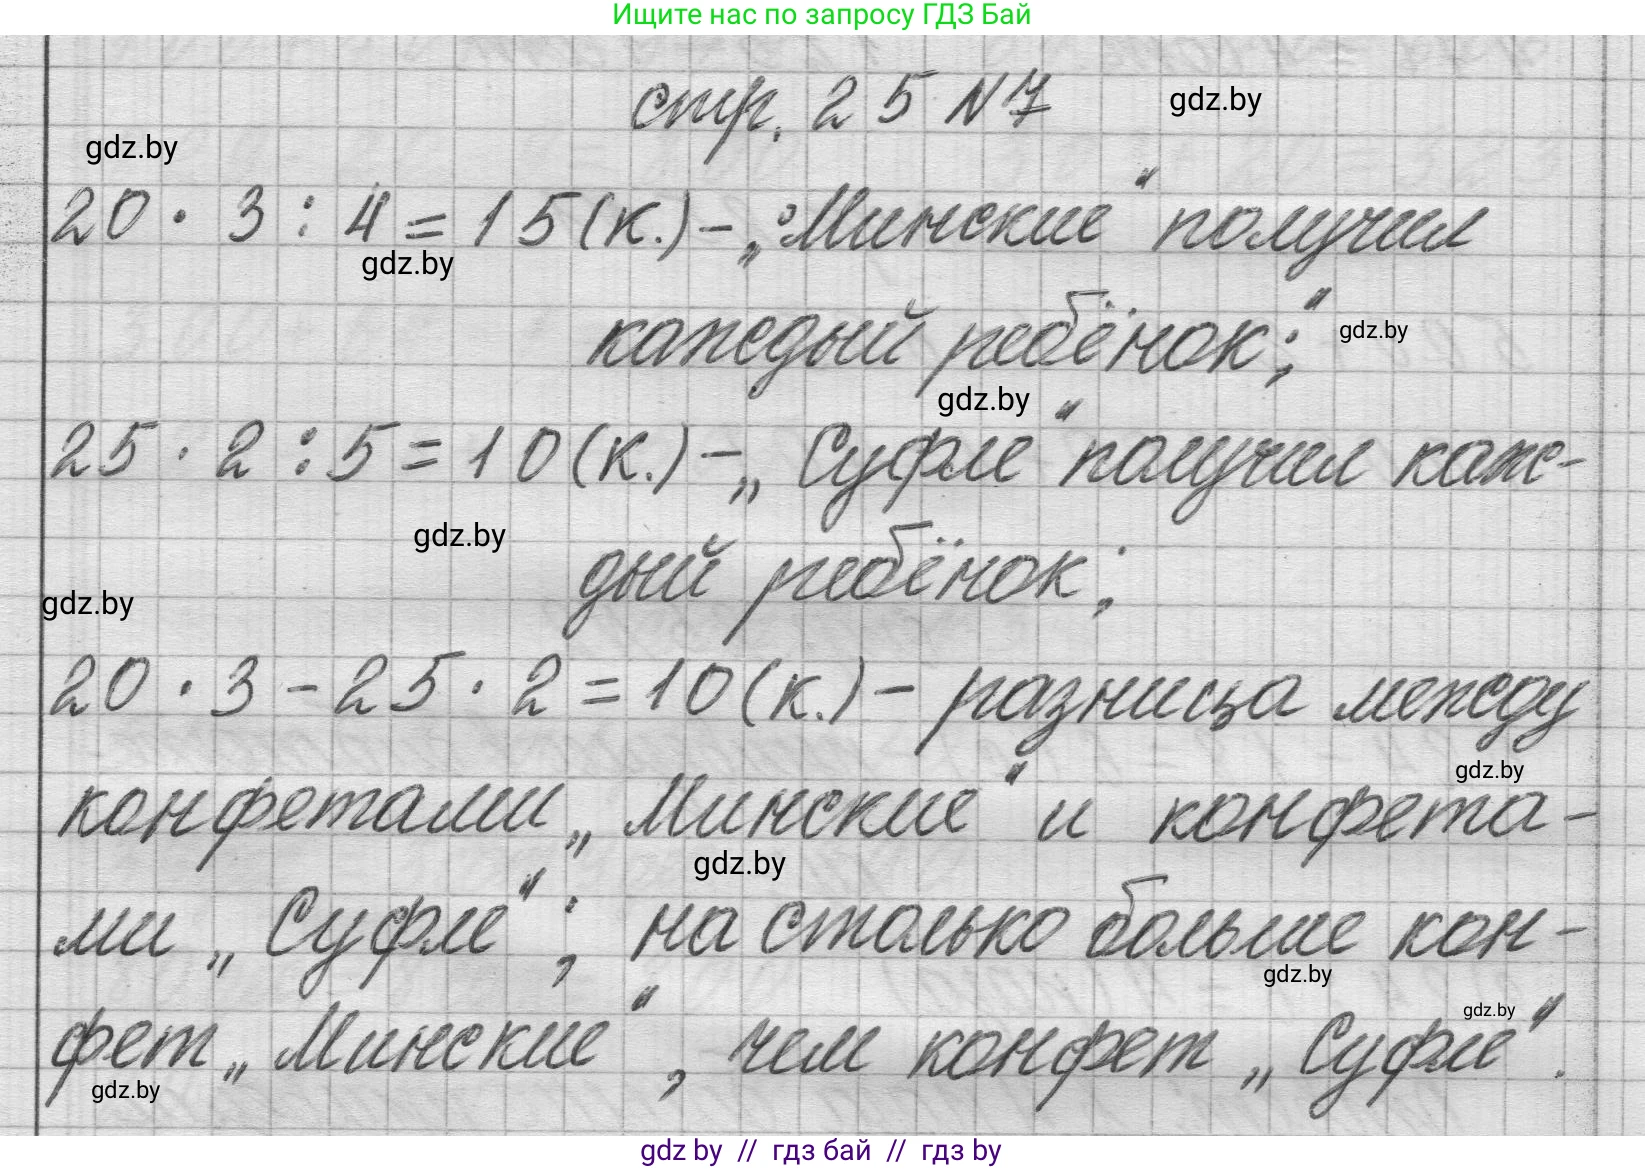 Ищите нас по запросу ГДЗ Бай
стр. 25 N 7
gdz.by
gdz.by
20 · 3 : 4 = 15 (к.) – „Минские“ получил
gdz.by
каждый ребёнок;“
gdz.by
gdz.by
25 · 2 : 5 = 10 (к.) – „Суфле“ получил каж-
gdz.by
дый ребёнок;
gdz.by
20 · 3 – 25 · 2 = 10 (к.) – разница между
gdz.by
конфетами „Минские“ и конфета-
gdz.by
ми „Суфле“; на столько больше кон-
gdz.by
gdz.by
фет „Минские“, чем конфет „Суфле“.
gdz.by
gdz by // гдз бай // гдз by